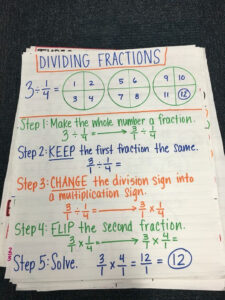 DIVIDING FRACTIONS
3 ÷ 1/4
1 2 3 4
5 6 7 8
9 10 11 12
Step 1: Make the whole number a fraction.
3 ÷ 1/4 = → 3/1 ÷ 1/4
Step 2: KEEP the first fraction the same.
3/1 ÷ 1/4 =
Step 3: CHANGE the division sign into
a multiplication sign.
3/1 ÷ 1/4 → 3/1 x 1/4
Step 4: FLIP the second fraction.
3/1 x 1/4 = → 3/1 x 4/1 =
Step 5: Solve. 3/1 x 4/1 = 12/1 = 12